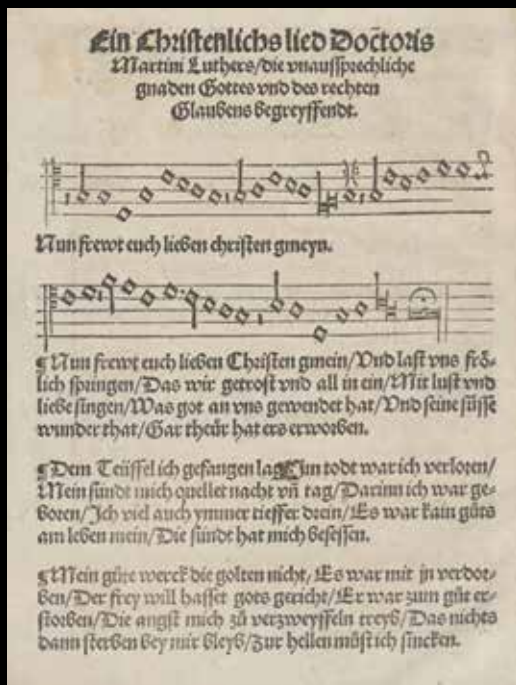 Ein Christenlichs lied Doctoris
Martini Luthers/die vnaussprechliche
gnaden Gottes vnd des rechten
Glaubens begreyffendt.
Nun frewt euch lieben christen gmeyn.
¶Nun frewt euch lieben Christen gmein/Vnd last vns frö-
lich springen/Das wir getrost vnd all in ein/Mit lust vnd
liebe singen/Was got an vns gewendet hat/Vnd seine süsse
wunder that/Gar theür hat ers erworben.
¶Dem Teüffel ich gefangen lag/Im todt war ich verloren/
Mein sundt mich quellet nacht vñ tag/Darinn ich war ge-
boren/Ich viel auch ymmer tieffer drein/Es war kain gůts
am leben mein/Die sundt hat mich besessen.
¶Mein gůte werck die golten nicht/Es war mit jn verdor-
ben/Der frey will hasset gots gericht/Er war zum gůt er-
storben/Die angst mich zů verzweyffeln treyb/Das nichts
dann sterben bey mir bleyb/Zur hellen můst ich sincken.